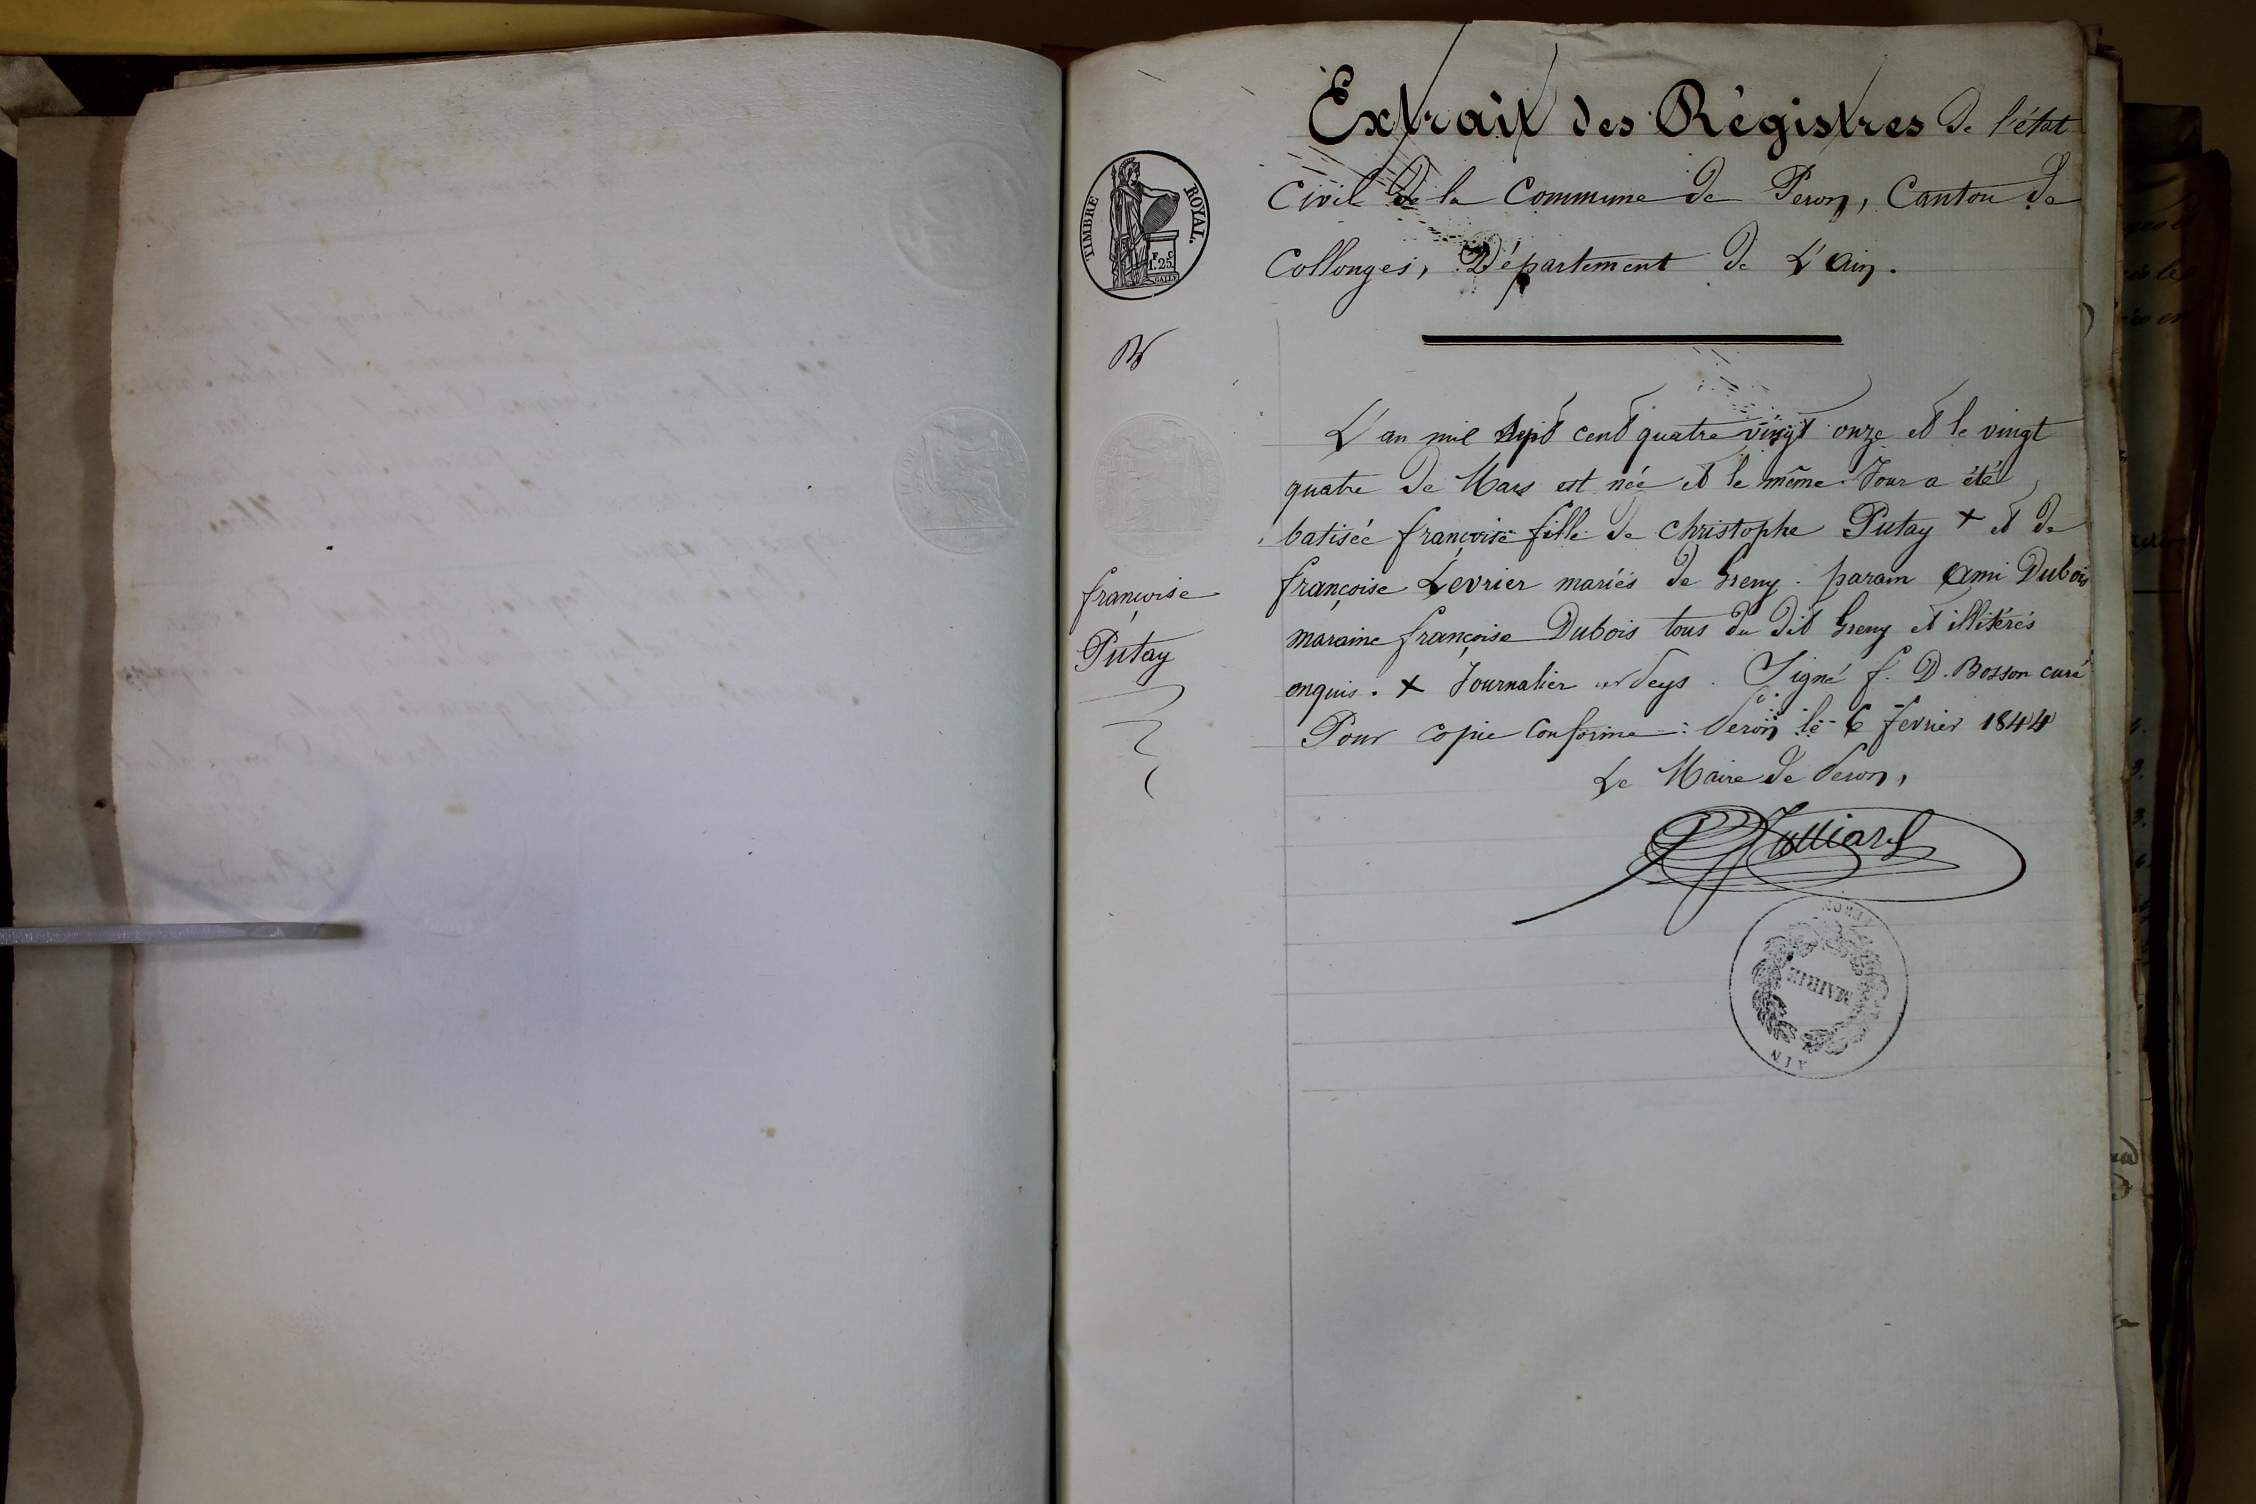 Extrait des Régistres de l'état
Civil de la Commune de Peron, Canton de
Collonges, Département de L'Ain.
TIMBRE ROYAL.
1.25
L'an mil sept cent quatre vingt onze et le vingt
quatre de Mars est née et le même Jour a été
batisée françoise fille de christophe Putay + et de
françoise Levrier mariés de Greny. parain Ami Dubois
maraine françoise Dubois tous du dit Greny et illitérés
enquis. + Journalier Signé f. D. Bosson curé
Pour copie Conforme : Peron le 6 fevrier 1844
Le Maire de Peron,
Julliard
françoise
Putay
MAIRIE
AIN